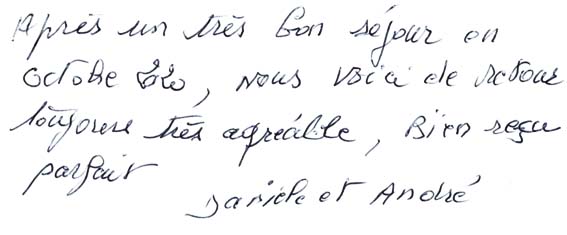 Après un très bon séjour en
octobre 2020, nous voici de retour
toujours très agréable, Bien reçu
parfait
Danièle et André